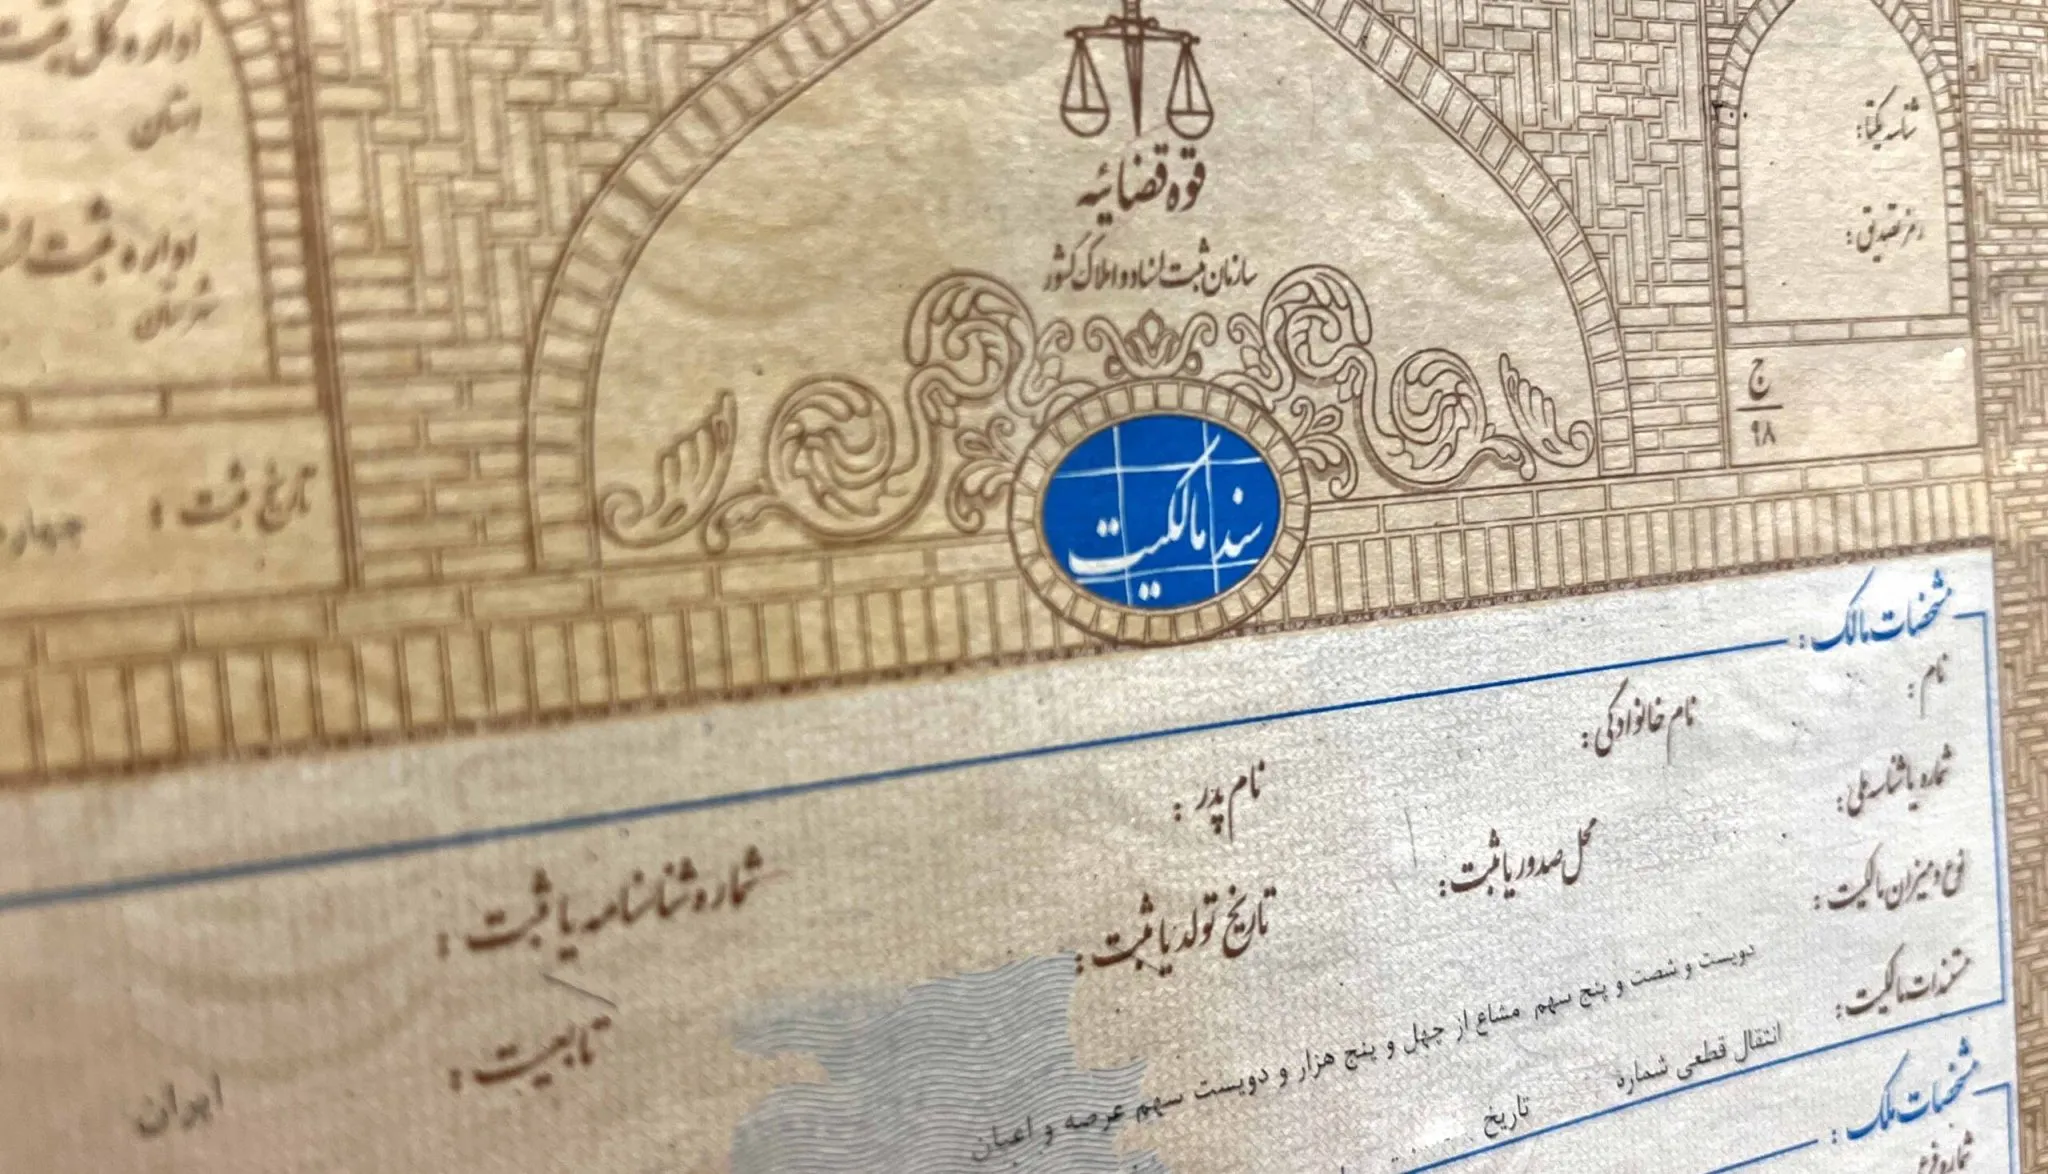 قوه قضائیه
سازمان ثبت اسناد و املاک کشور
شناسه یکتا:
رمز تصدیق:
ج
۹۸
اداره کل ثبت
استان
اداره ثبت
شهرستان
تاریخ ثبت :
سند مالکیت
مشخصات مالک :
نام :
نام خانوادگی :
نام پدر :
شماره شناسنامه یا ثبت :
شماره یا شناسه ملی :
محل صدور یا ثبت :
تاریخ تولد یا ثبت :
تابعیت : ایران
نوع و میزان مالکیت :
دویست و شصت و پنج سهم مشاع از چهل و پنج هزار و دویست سهم عرصه و اعیان
مستندات مالکیت :
انتقال قطعی شماره
تاریخ
مشخصات ملک :